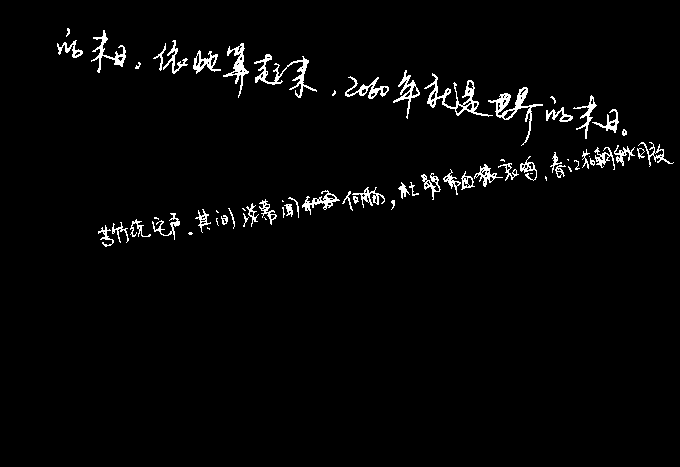 的末日。依此算起来,2060年就是世界的末日。
苦竹绕宅声。其间淡暮闻和雪何物,杜鹃啼血猿哀鸣,春江花朝秋月夜